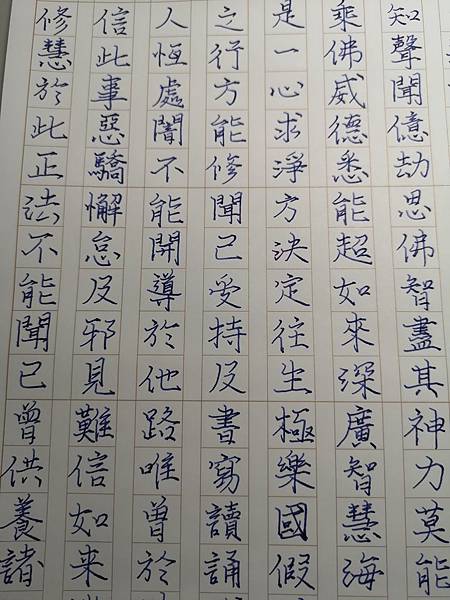 知聲聞億劫思佛智盡其神力莫能
乘佛威德悉能超如來深廣智慧海
是一心求淨方決定往生極樂國假
之行方能修聞已受持及書寫讀誦
人恆處闇不能開導於他路唯曾於
信此事惡驕懈怠及邪見難信如来
修慧於此正法不能聞已曾供養諸